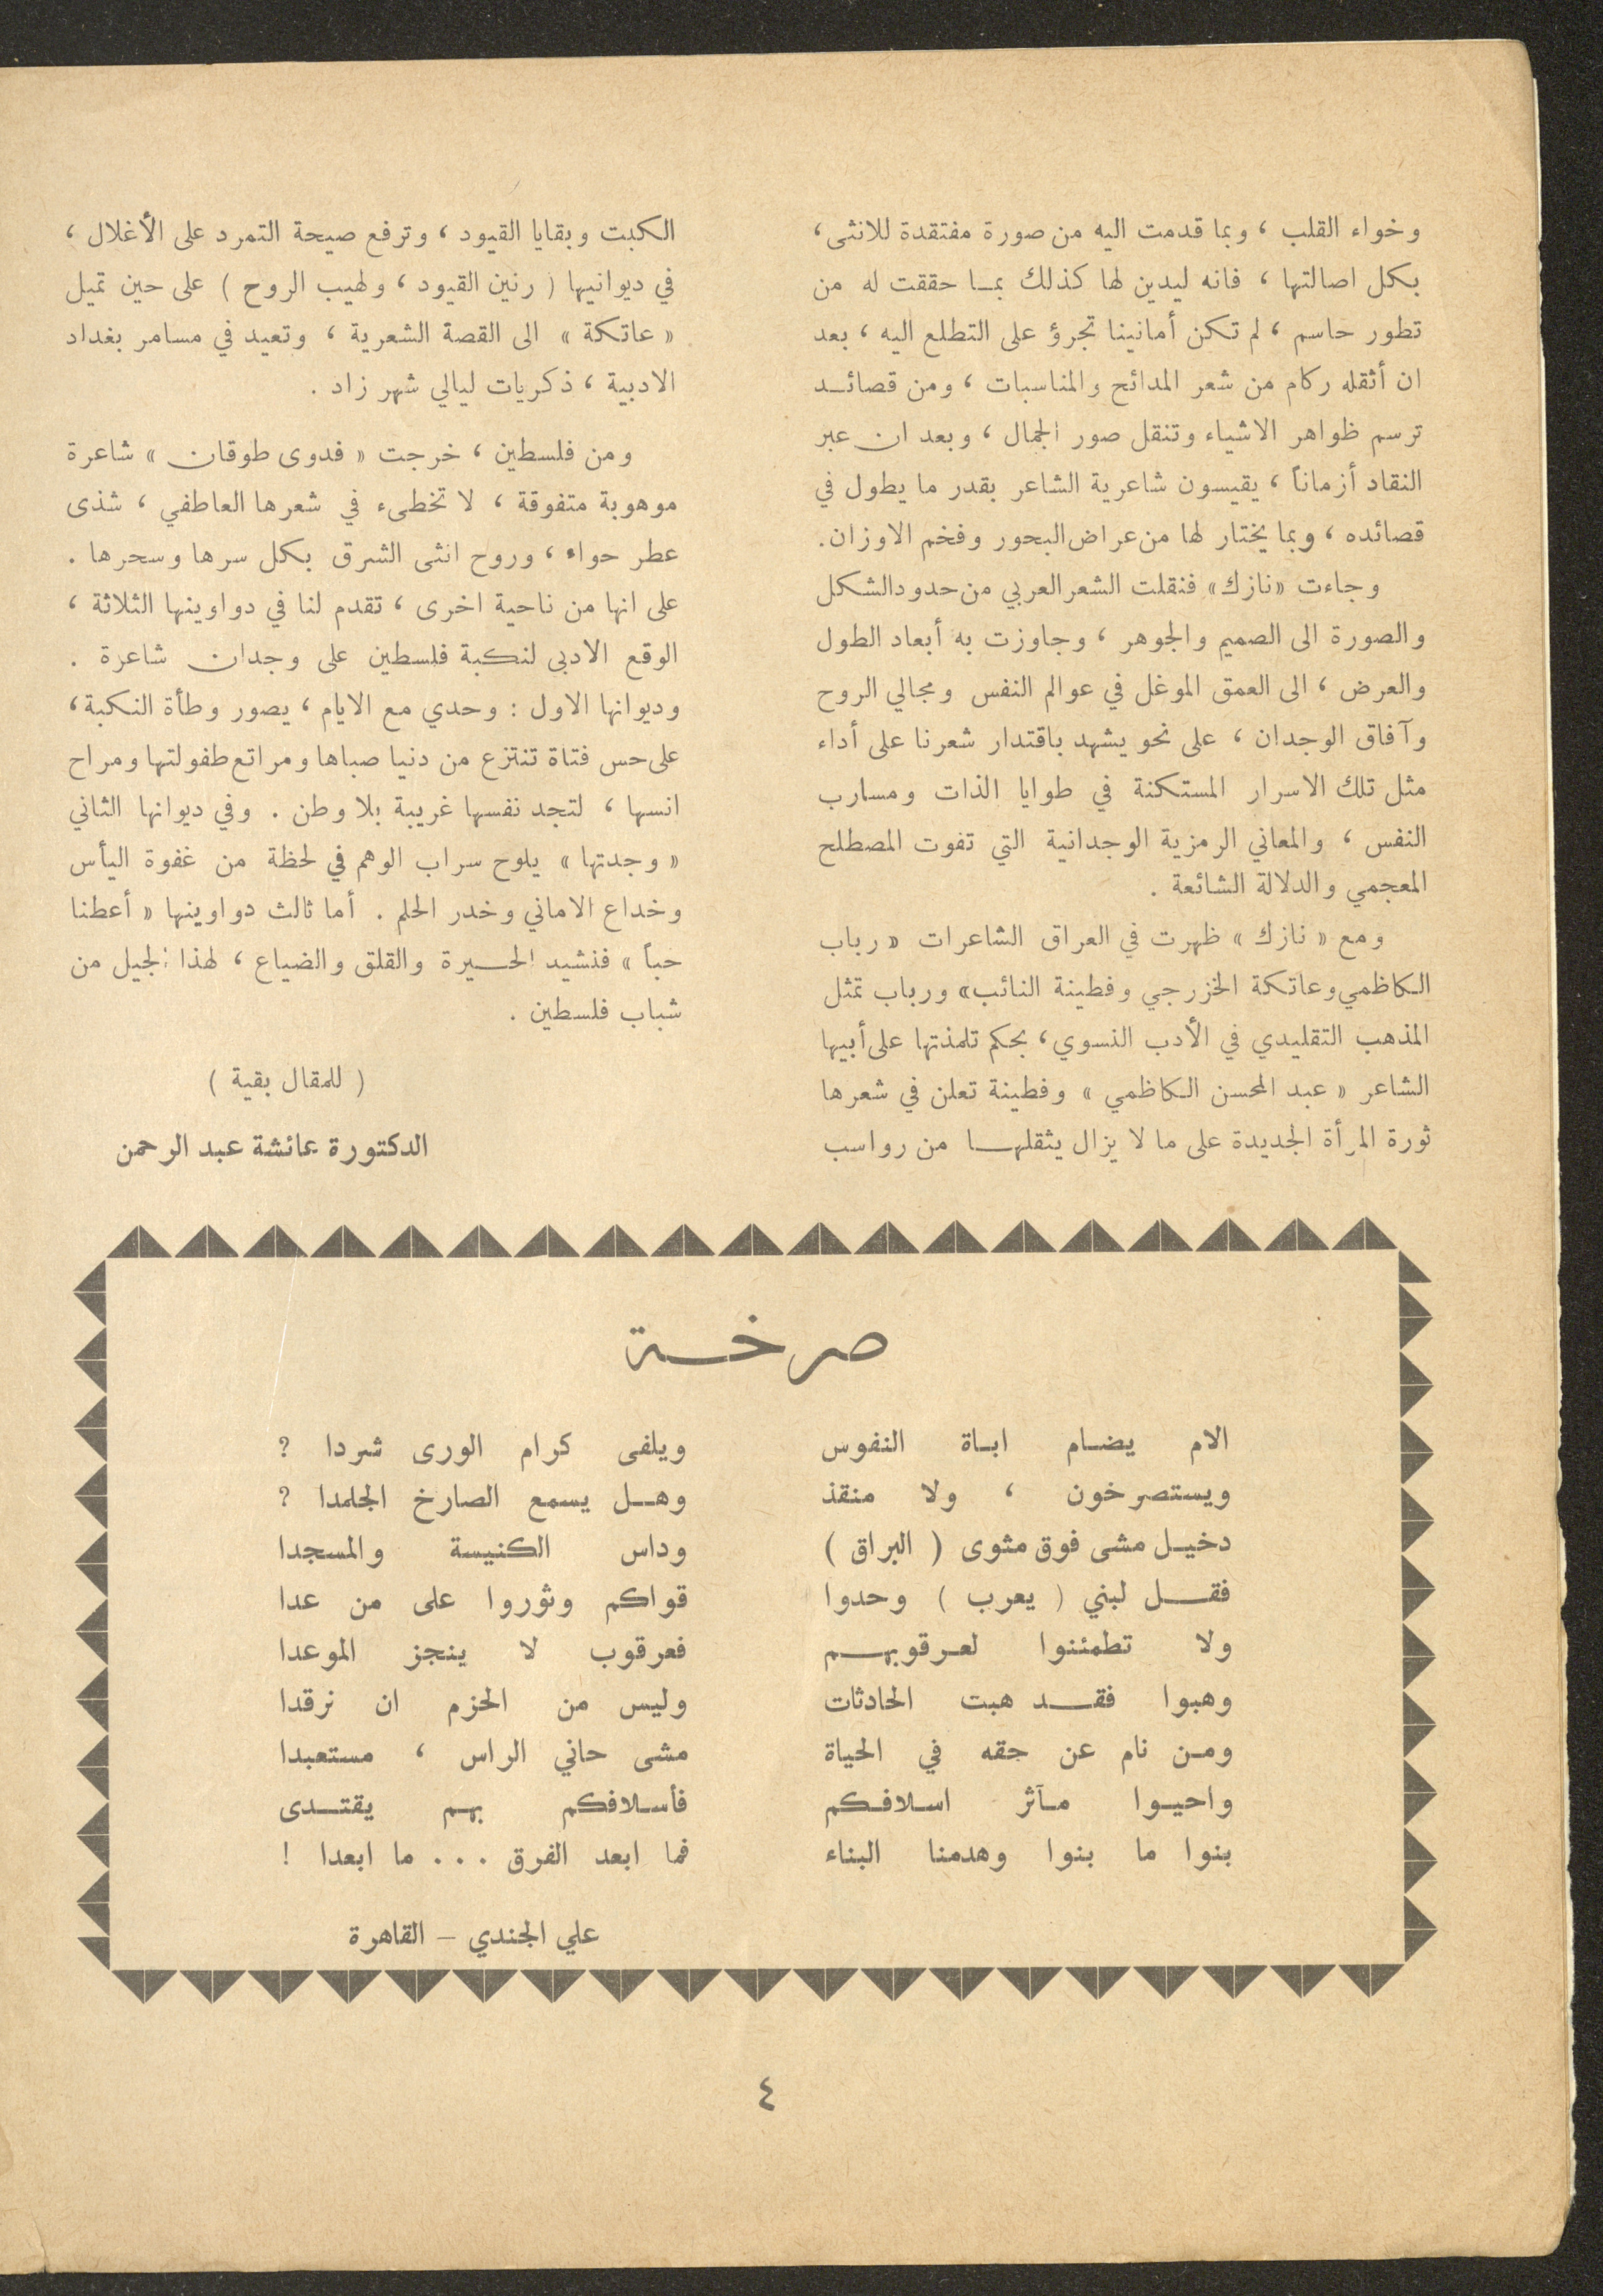 وخواء القلب ، وبما قدمت اليه من صورة مفتقدة للانثى ،
بكل اصالتها ، فانه ليدين لها كذلك بمـا حققت له من
تطور حاسم ، لم تكن أمانينا تجرؤ على التطلع اليه ، بعد
ان أثقله ركام من شعر المدائح والمناسبات ، ومن قصائـد
ترسم ظواهر الاشياء وتنقل صور الجمال ، وبعد ان عبر
النقاد أزماناً ، يقيسون شاعرية الشاعر بقدر ما يطول في
قصائده ، وبما يختار لها من عراض البحور وفخم الاوزان .
وجاءت « نازك » فنقلت الشعر العربي من حدود الشكل
والصورة الى الصميم والجوهر ، وجاوزت به أبعاد الطول
والعرض ، الى العمق الموغل في عوالم النفس ومجالي الروح
وآفاق الوجدان ، على نحو يشهد باقتدار شعرنا على أداء
مثل تلك الاسرار المستكنة في طوايا الذات ومسارب
النفس ، والمعاني الرمزية الوجدانية التي تفوت المصطلح
المعجمي والدلالة الشائعة .
ومع « نازك » ظهرت في العراق الشاعرات « رباب
الكاظمي وعاتكة الخزرجي وفطينة النائب » ورباب تمثل
المذهب التقليدي في الأدب النسوي ، بحكم تلمذتها على أبيها
الشاعر « عبد المحسن الكاظمي » وفطينة تعلن في شعرها
ثورة المرأة الجديدة على ما لا يزال يثقلهـا من رواسب
الكبت وبقايا القيود ، وترفع صيحة التمرد على الأغلال ،
في ديوانيها ( رنين القيود ، ولهيب الروح ) على حين تميل
« عاتكة » الى القصة الشعرية ، وتعيد في مسامر بغداد
الادبية ، ذكريات ليالي شهر زاد .
ومن فلسطين ، خرجت « فدوى طوقان » شاعرة
موهوبة متفوقة ، لا تخطىء في شعرها العاطفي ، شذى
عطر حواء ، وروح انثى الشرق بكل سرها وسحرها .
على انها من ناحية اخرى ، تقدم لنا في دواوينها الثلاثة ،
الوقع الادبى لنكبة فلسطين على وجدان شاعرة .
وديوانها الاول : وحدي مع الايام ، يصور وطأة النكبة ،
على حس فتاة تنتزع من دنيا صباها ومراتع طفولتها ومراح
انسها ، لتجد نفسها غريبة بلا وطن . وفي ديوانها الثاني
« وجدتها » يلوح سراب الوهم في لحظة من غفوة اليأس
وخداع الاماني وخدر الحلم . أما ثالث دواوينها « أعطنا
حباً » فنشيد الحـيرة والقلق والضياع ، لهذا الجيل من
شباب فلسطين .
( للمقال بقية )
الدكتورة عائشة عبد الرحمن
صرخـة
الام يضـام ابـاة النفوس ويلفى كرام الورى شردا ؟
ويستصرخون ، ولا منقذ وهـل يسمع الصارخ الجلمدا ؟
دخيـل مشى فوق مثوى ( البراق ) وداس الكنيسة والمسجدا
فقـل لبني ( يعرب ) وحدوا قواكم وثوروا على من عدا
ولا تطمئنوا لعرقوبهـم فعرقوب لا ينجز الموعدا
وهبوا فقـد هبت الحادثات وليس من الحزم ان نرقدا
ومـن نام عن حقه في الحياة مشى حاني الراس ، مستعبدا
واحيـوا مـآثر اسلافـكم فأسـلافكم بهم يقتـدى
بنوا ما بنوا وهدمنا البناء فما ابعد الفرق ... ما ابعدا !
علي الجندي – القاهرة
٤